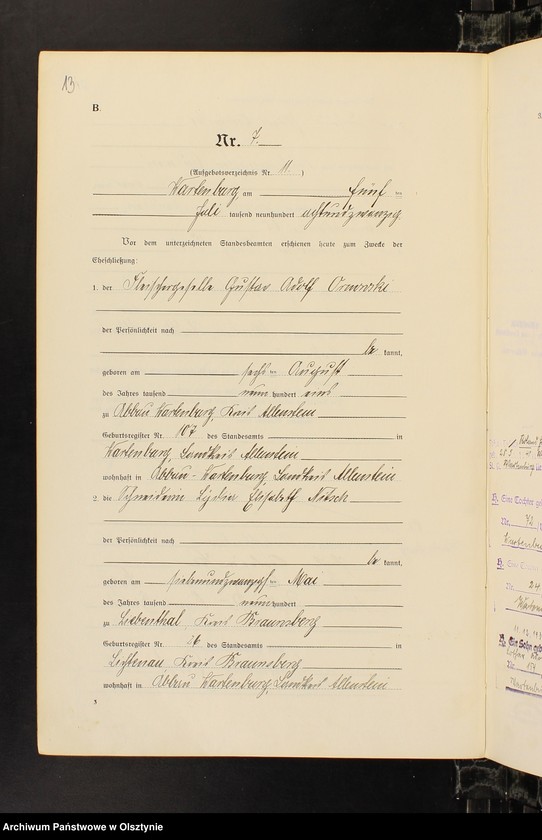 13.
B.
Nr. 7.
(Aufgebotsverzeichnis Nr. 11.)
Wartenburg am fünften
Juli tausend neunhundert achtundzwanzig
Vor dem unterzeichneten Standesbeamten erschienen heute zum Zwecke der
Eheschließung:
1. der Fleischergeselle Gustav Adolf
der Persönlichkeit nach
be kannt,
geboren am sechsten August
des Jahres tausend neun hundert eins
zu Abbau Wartenburg, Kreis Allenstein
Geburtsregister Nr. 107 des Standesamts in
Wartenburg, Landkreis Allenstein
wohnhaft in Abbau-Wartenburg, Landkreis Allenstein
2. die Schneiderin Lydia Elisabeth
der Persönlichkeit nach
be kannt,
geboren am siebenundzwanzigsten Mai
des Jahres tausend neun hundert
zu Liebenthal Kreis Braunsberg
Geburtsregister Nr. 26 des Standesamts in
Lichtenau, Kreis Braunsberg
wohnhaft in Abbau Wartenburg, Landkreis Allenstein
Archiwum Państwowe w Olsztynie